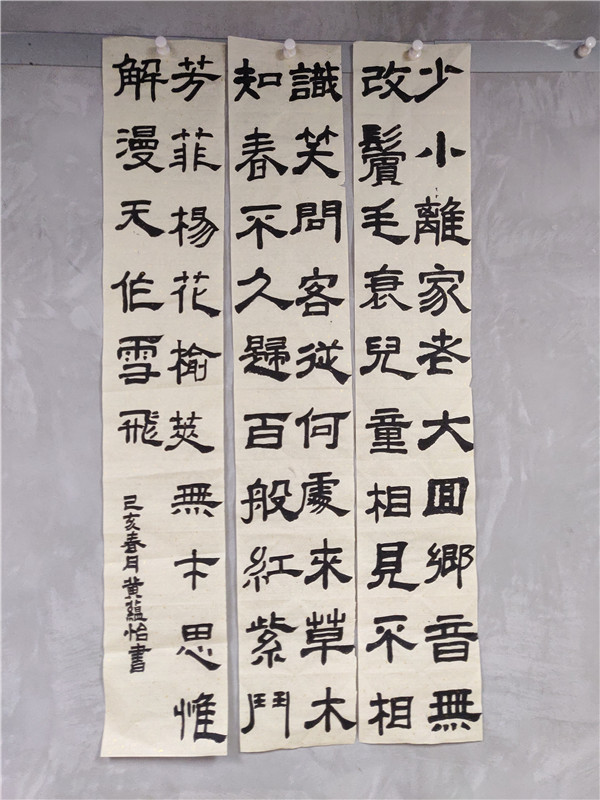 少小離家老大回鄉音無
改鬢毛衰兒童相見不相
識笑問客從何處來草木
知春不久歸百般紅紫鬥
芳菲楊花榆莢無才思惟
解漫天作雪飛
己亥春月黃蘊怡書